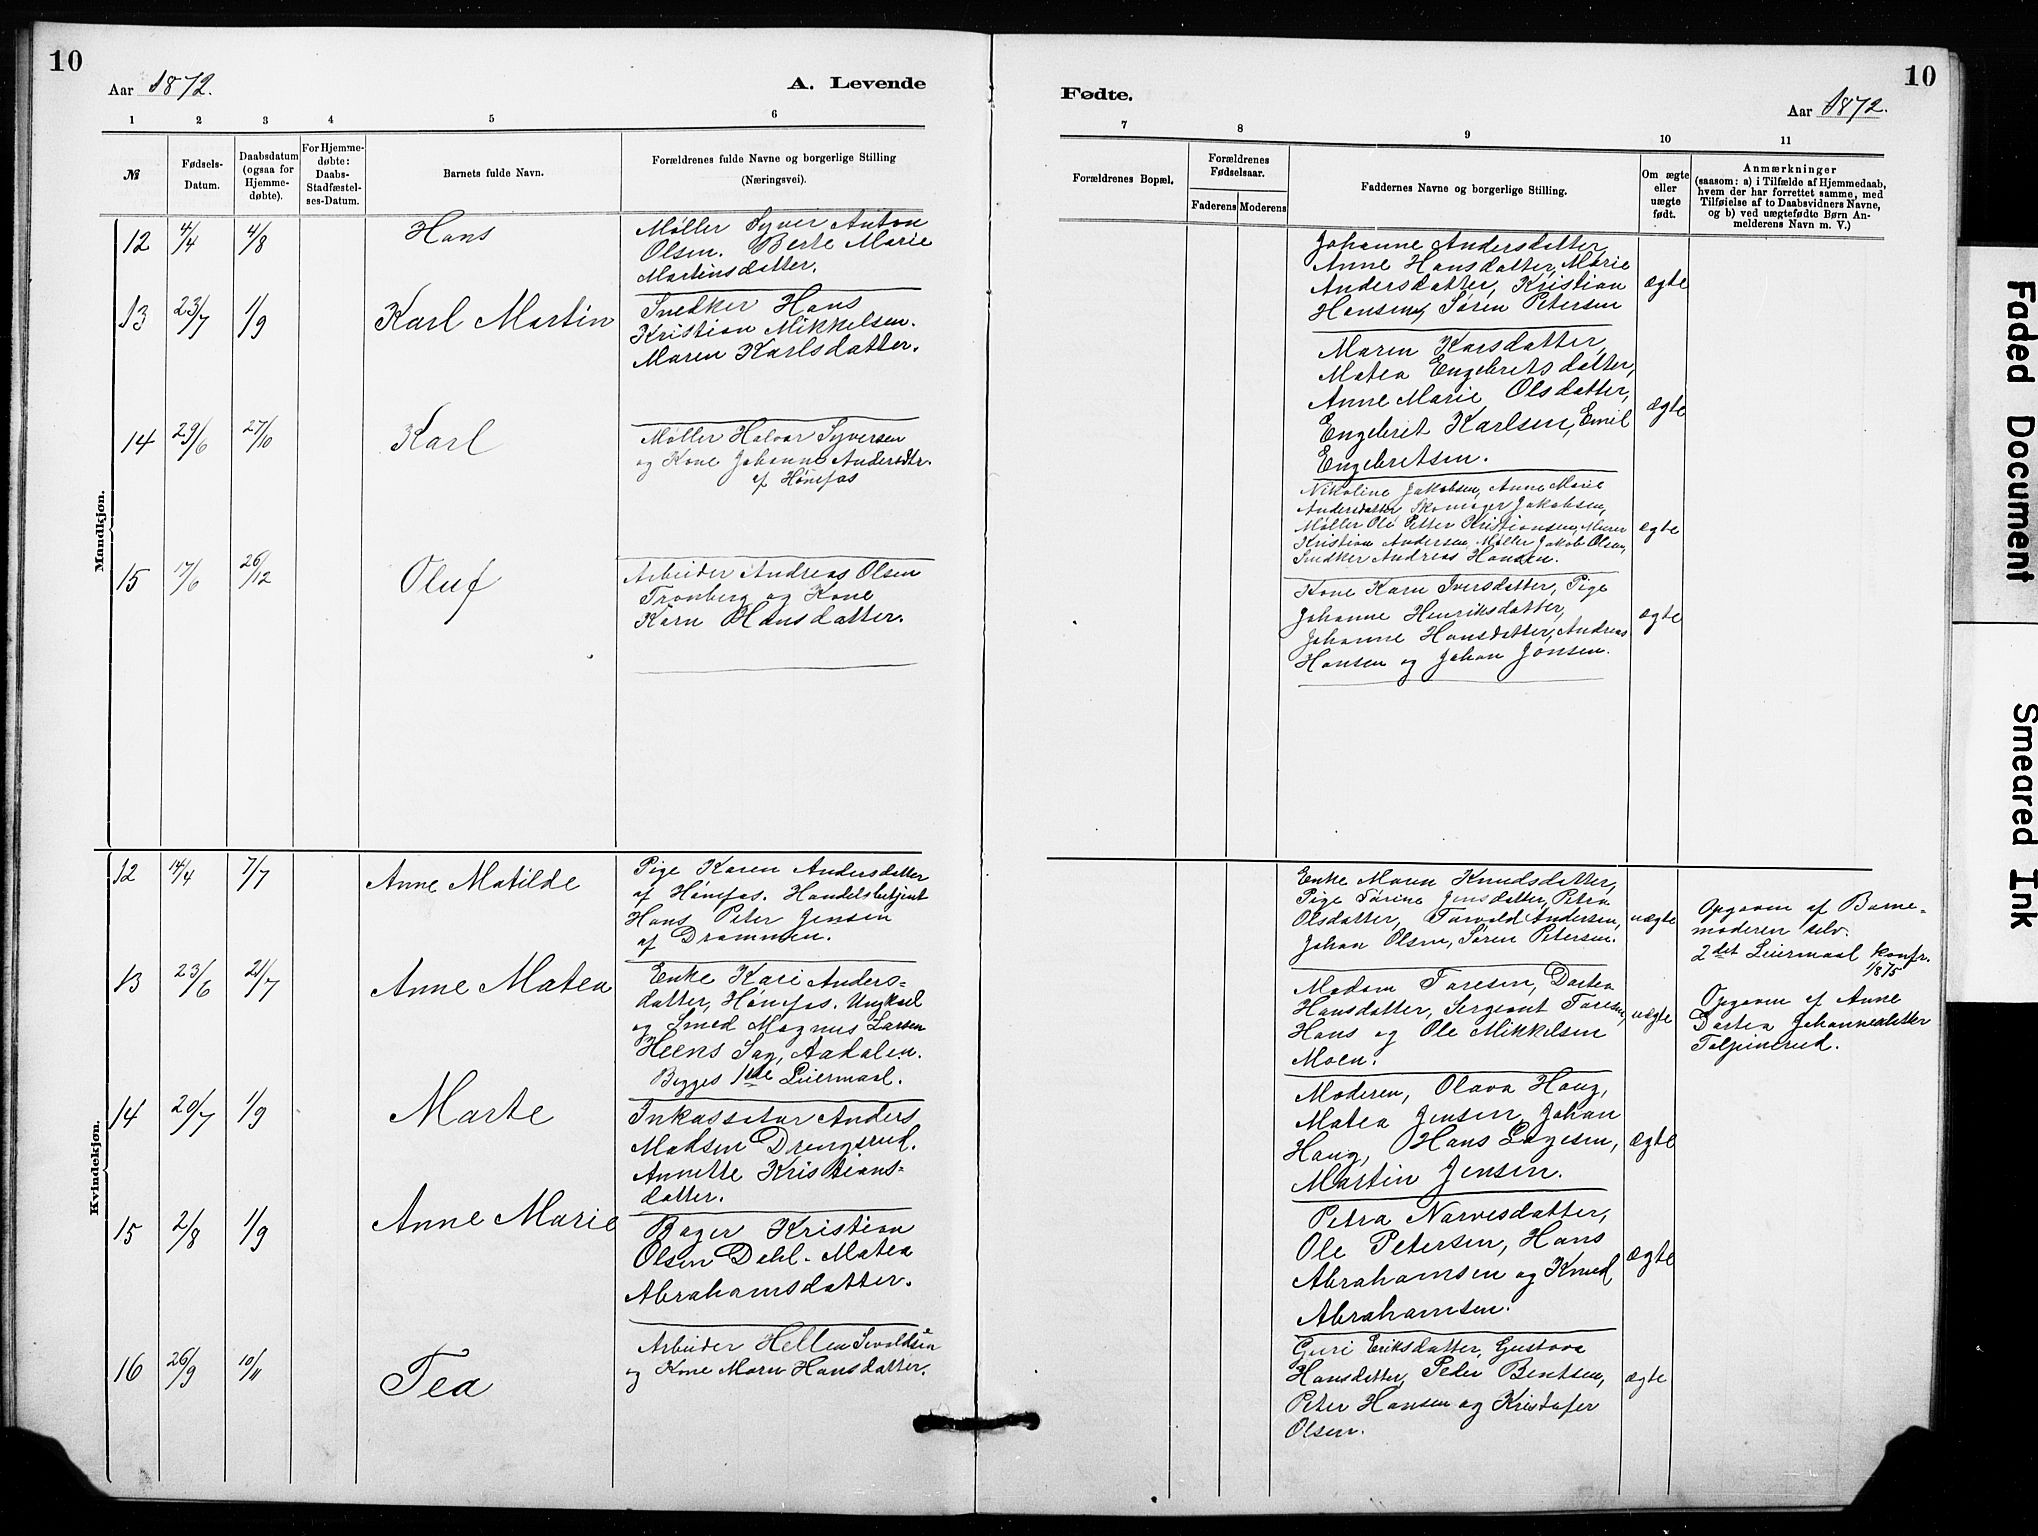 10
Aar 1872.
A. Levende
1 2 3 4 5 6
№
Fødsels-
Datum.
Daabsdatum
(ogsaa for
Hjemme-
døbte).
For Hjemme-
døbte:
Daabs-
Stadfæstel-
ses-Datum.
Barnets fulde Navn.
Forældrenes fulde Navne og borgerlige Stilling
(Næringsvei).
Mandkjøn.
12 4/4 4/8 Hans
Møller Syver Anton
Olsen. Berte Marie
Martinsdatter.
13 23/7 1/9 Karl Martin
Snedker Hans
Kristian Mikkelsen.
Maren Karlsdatter.
14 29/6 27/10 Karl
Møller Halvor Syversen
og Kone Johanne Andersdtr.
af Hønefos
15 17/6 26/12 Oluf
Arbeider Andreas Olsen
Tronberg og Kone
Karn Hansdatter.
Kvindekjøn.
12 14/4 7/7 Anne Matilde
Pige Karen Andersdatter
af Hønefos. Handelsbetjent
Hans Peter Jensen
af Drammen.
13 23/6 21/7 Anne Matea
Enke Kari Anders-
datter, Hønefos. Ungkarl
og Smed Magnus Larsen
Heens Sag, Aadalen.
Begges 1ste Leiermaal.
14 20/7 1/9 Marte
Inkassator Anders
Madsen Drengsrud.
Annette Kristians-
datter.
15 2/8 1/9 Anne Marie
Bager Kristian
Olsen Dahl. Matea
Abrahamsdatter.
16 26/9 10/11 Tea
Arbeider Hellen Sevaldsen
og Kone Maren Hansdatter.
10
Fødte.
Aar 1872.
7 8 9 10 11
Forældrenes Bopæl.
Forældrenes
Fødselsaar.
Faderens Moderens
Faddernes Navne og borgerlige Stilling.
Om ægte
eller
uægte
født.
Anmærkninger
(saasom: a) i Tilfælde af Hjemmedaab,
hvem der har forrettet samme, med
Tilføielse af to Daabsvidners Navne,
og b) ved uægtefødte Børn An-
melderens Navn m. V.)
Johanne Andersdatter,
Anne Hansdatter, Marie
Andersdatter, Kristian
Hansen, Søren Petersen
ægte
Maren Karsdatter,
Matea Engebretsdatter,
Anne Marie Olsdatter,
Engebret Karlsen, Emil
Engebretsen.
ægte
Nikoline Jakobsen, Anne Marie
Andersdatter Skomager Jakobsen,
Møller Ole Petter Kristiansen, Murer
Kristian Andersen, Møller Jakob Olsen,
Snedker Andreas Hansen.
ægte
Kone Karn Iversdatter, Pige
Johanne Henriksdatter,
Johanne Hansdatter, Andreas
Hansen og Johan Jonsen.
ægte
Enke Maren Knudsdatter,
Pige Torine Jensdatter, Petra
Olsdatter, Torvald Andersen,
Johan Olsen, Søren Petersen.
uægte
Opgaven af Barne-
moderen selv.
2det Leiermaal konfr.
1/875
Madam Toresen, Dortea
Hansdatter, Sergeant Toresen,
Hans og Ole Mikkelsen
Moen.
uægte
Opgaven af Anne
Dortea Johannesdatter
Tolpinrud.
Moderen, Olava Haug,
Matea Jensen, Johan
Haug, Hans Lagesen,
Martin Jensen.
ægte
Petra Narvesdatter,
Ole Petersen, Hans
Abrahamsen og Knud
Abrahamsen.
ægte
Guri Eriksdatter, Gustava
Hansdatter, Peder Bentsen,
Peter Hansen og Kristofer
Olsen.
ægte
Faded Document
Smeared Ink